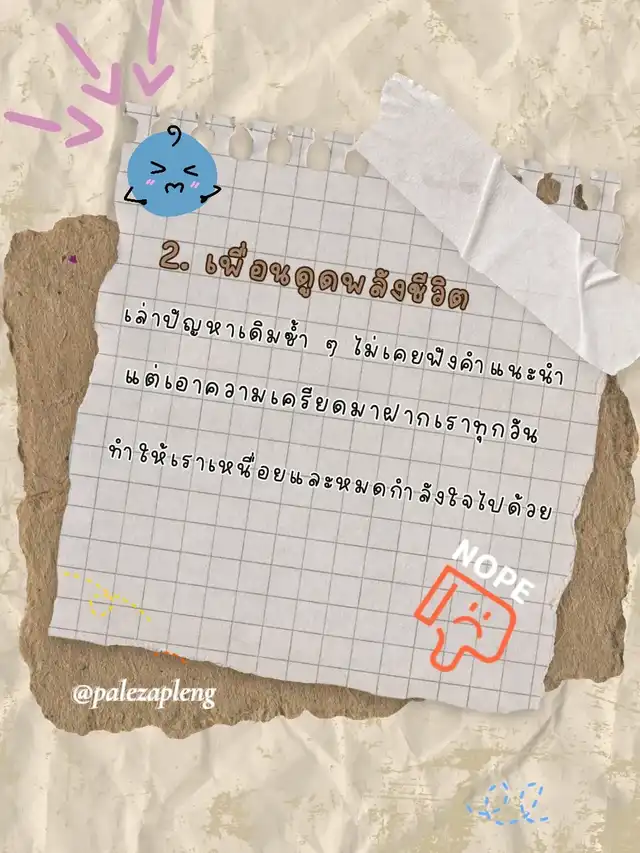 2. เพื่อนดูดพลังชีวิต
เล่าปัญหาเดิมซ้ำ ๆ ไม่เคยฟังคำแนะนำ
แต่เอาความเครียดมาฝากเราทุกวัน
ทำให้เราเหนื่อยและหมดกำลังใจไปด้วย
NOPE
@palezapleng